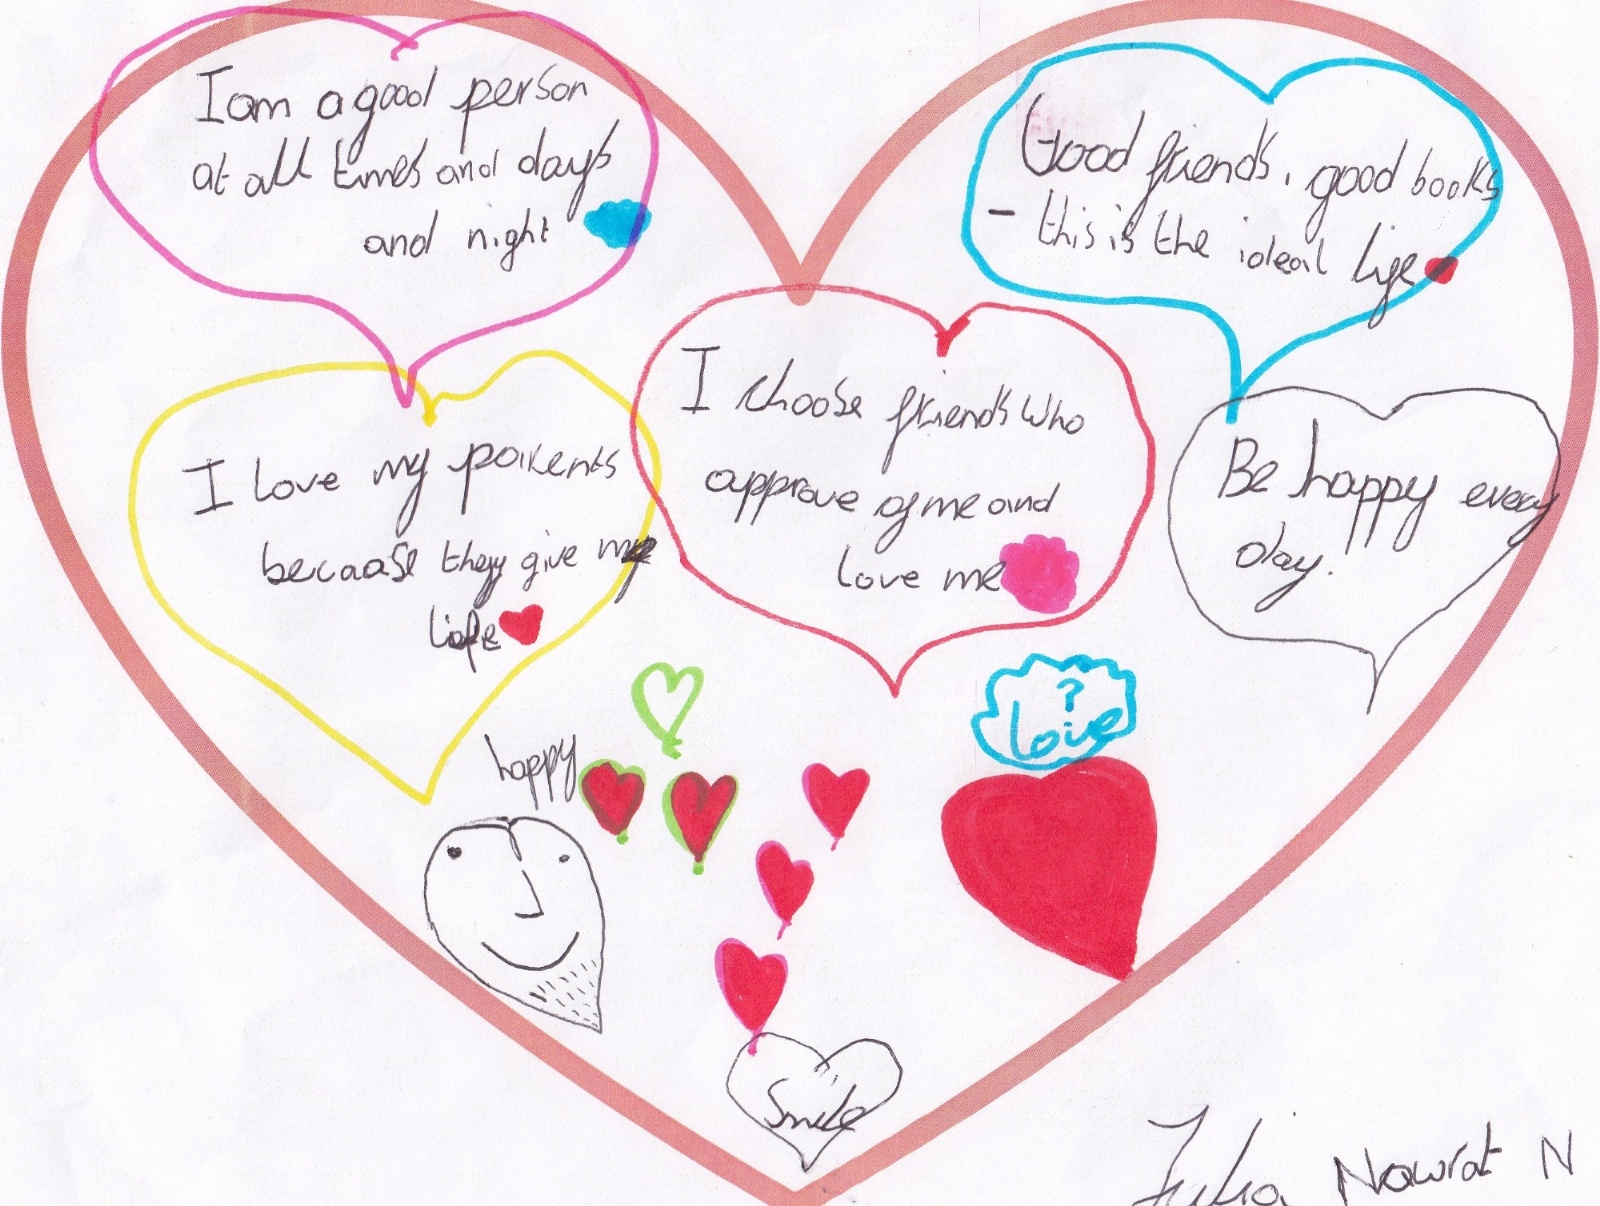 I am a good person
at all times and days
and night
Good friends, good books
- this is the ideal life
I love my parents
becaase they give my
life
I choose friends who
approve of me and
love me
Be happy every
day.
?
Love
happy
Smile
Julia Nawrat N